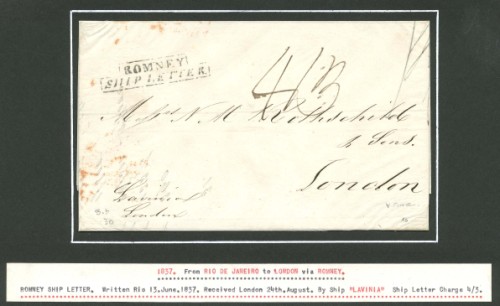 ROMNEY
SHIP LETTER.
4/3
Messrs N. M. Rothschild
& Sons.
London
Lavinia
London
1837. From RIO DE JANEIRO to LONDON via ROMNEY.
ROMNEY SHIP LETTER. Written Rio 13.June.1837. Received London 24th.August. By Ship "LAVINIA" Ship Letter Charge 4/3.